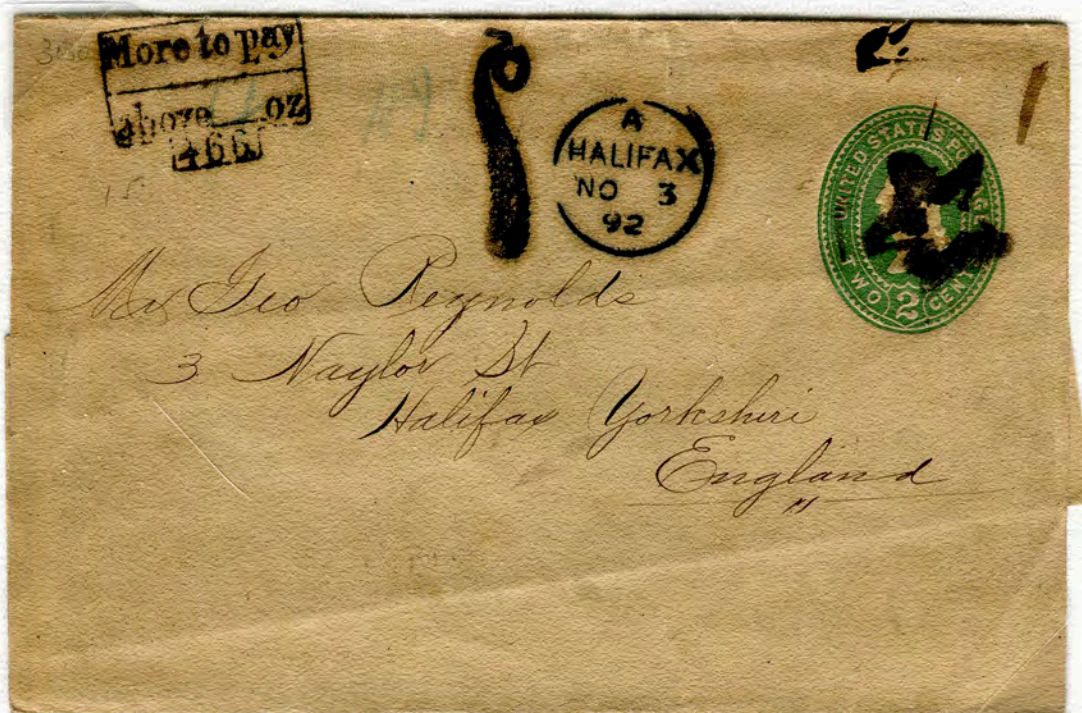 More to pay
above oz
466
A
HALIFAX
NO 3
92
UNITED STATES POSTAGE
TWO 2 CENTS
15
Mr Geo Reynolds
3 Naylor St
Halifax Yorkshire
England